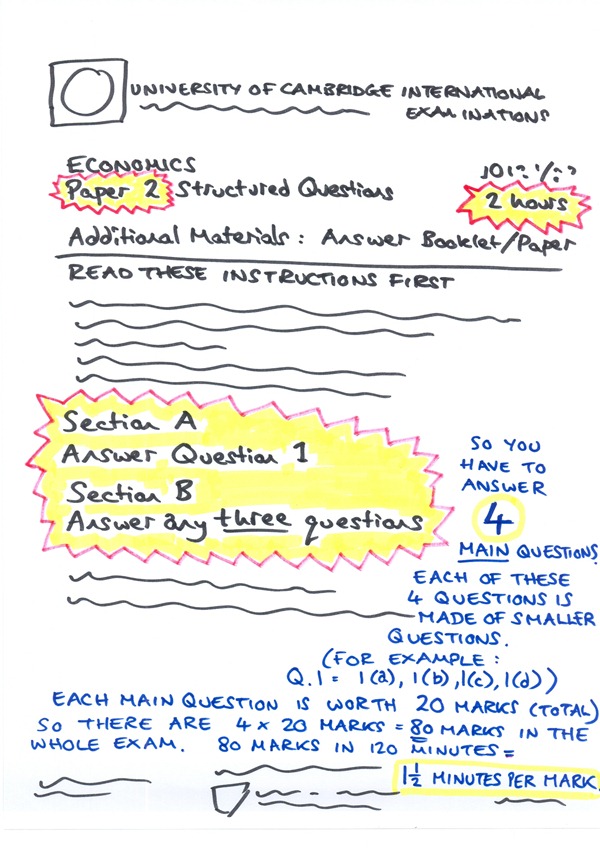 UNIVERSITY OF CAMBRIDGE INTERNATIONAL
EXAMINATIONS
ECONOMICS
Paper 2 Structured Questions
2 hours
Additional Materials: Answer Booklet/Paper
READ THESE INSTRUCTIONS FIRST
Section A
Answer Question 1
Section B
Answer any three questions
SO YOU
HAVE TO
ANSWER
4
MAIN QUESTIONS
EACH OF THESE
4 QUESTIONS IS
MADE OF SMALLER
QUESTIONS.
(FOR EXAMPLE:
Q.1 = 1(a), 1(b), 1(c), 1(d))
EACH MAIN QUESTION IS WORTH 20 MARKS (TOTAL)
SO THERE ARE 4 x 20 MARKS = 80 MARKS IN THE
WHOLE EXAM. 80 MARKS IN 120 MINUTES =
1 1/2 MINUTES PER MARK.